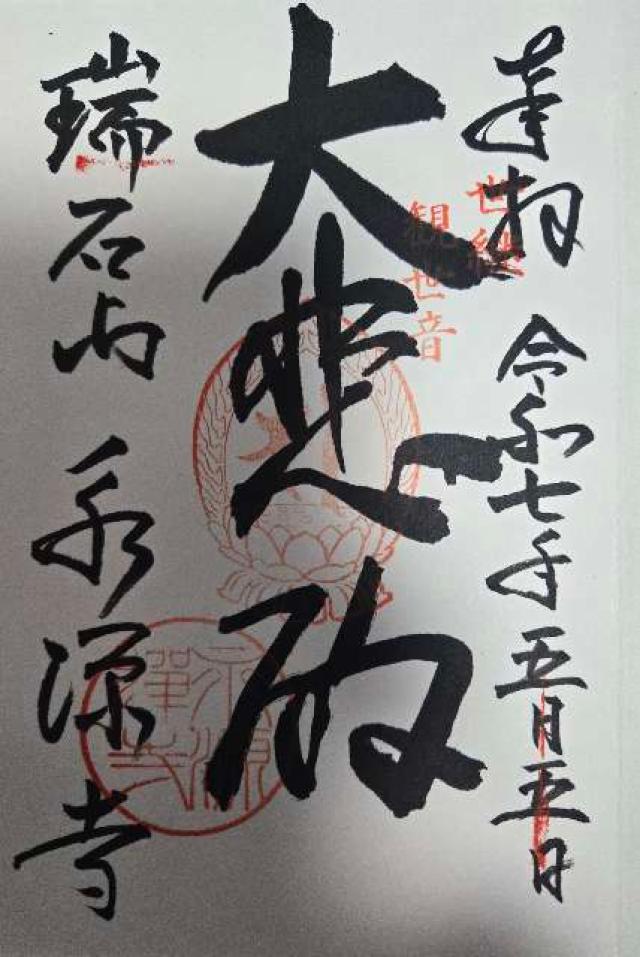 奉拝 令和七年五月五日
世継
観世音
大悲殿
瑞石山 永源寺
永源禅寺